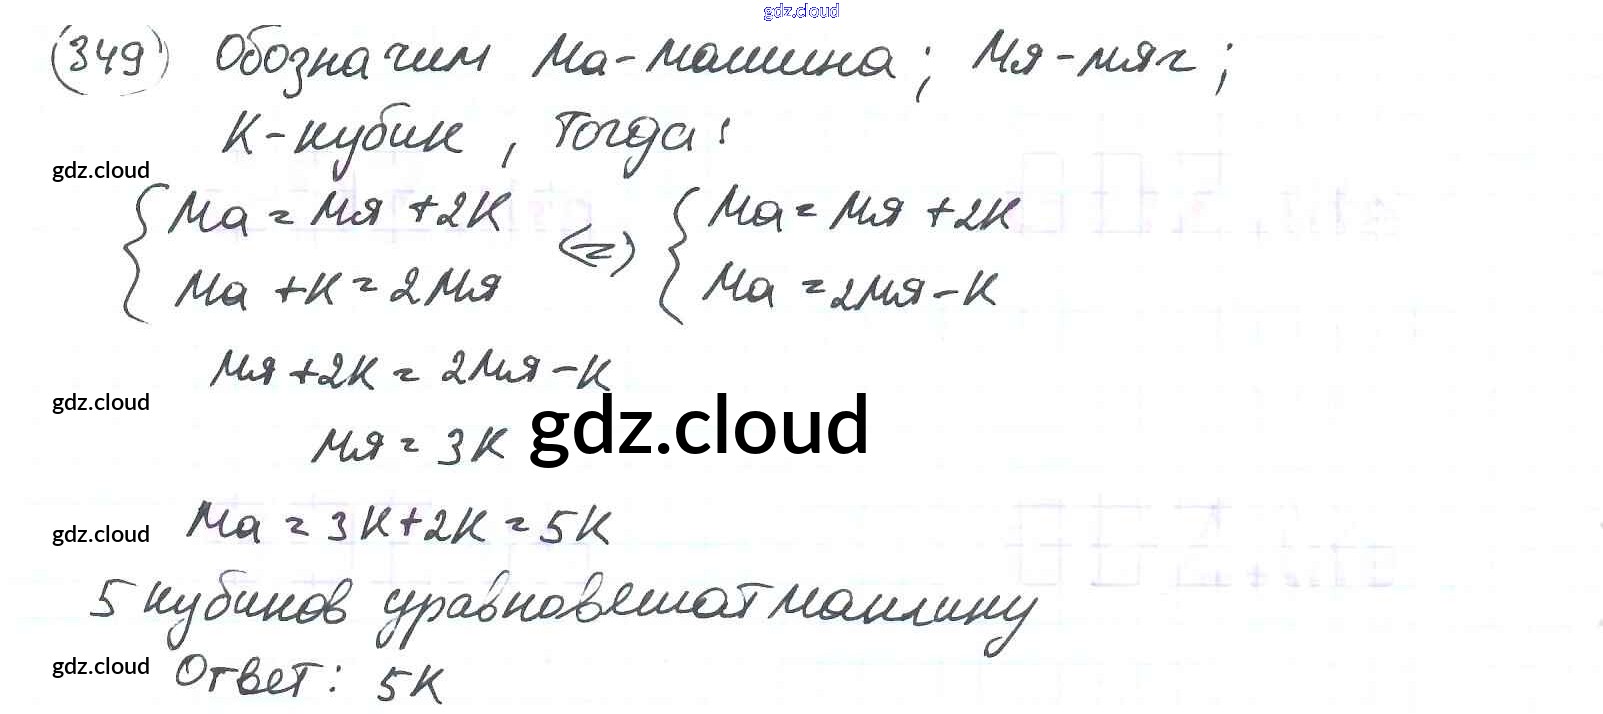 gdz.cloud
(349) Обозначим Ма-машина; Мя-мяч;
К-кубик, Тогда:
gdz.cloud
{ Ма = Мя + 2К <=> { Ма = Мя + 2К
Ма + К = 2Мя Ма = 2Мя - К
Мя + 2К = 2Мя - К
gdz.cloud
Мя = 3К gdz.cloud
gdz.cloud
Ма = 3К + 2К = 5К
5 кубиков уравновешат машину
gdz.cloud
Ответ: 5К